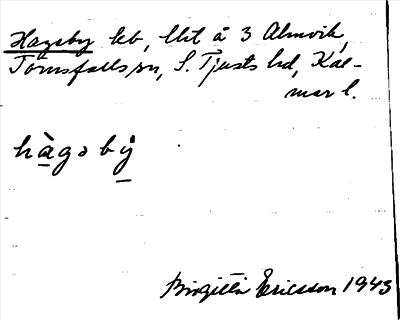 Hagsby kb, lht å 3 Almvik,
Törnsfalls sn, S. Tjusts hd, Kal-
mar l.
hàgsbý
Birgitta Ericsson 1943